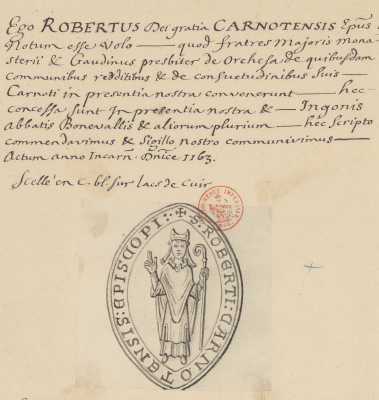 Ego ROBERTUS Dei gratia CARNOTENSIS Epūs.
Notum esse volo — quod fratres Majoris mona-
sterii & Gaudinus presbiter de Orchesa de quibusdam
communibus redditibus & de consuetudinibus suis —
Carnoti in presentia nostra convenerunt — hec
concessa sunt In presentia nostra & — Ingonis
Abbatis Bonevallis & aliorum plurium — hec scripto
commendavimus & sigillo nostro communivimus —
Actum anno Incarn. Dnice 1163.
Scellé en C. bl. sur lacs de Cuir
✠ S. ROBERTI: CARNOTENSIS: EPISCOPI: